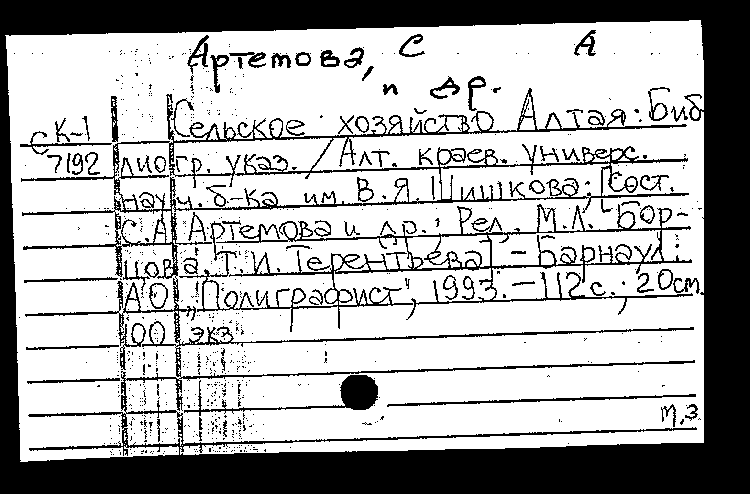 Артемова, С А
и др.
К-1 Сельское хозяйство Алтая: Биб
С 7192 лиогр. указ. / Алт. краев. универс.
науч. б-ка им. В.Я. Шишкова; [Сост.
С.А Артемова и др.; Ред. М.Л. Бор-
цова, Т.И. Терентьева] - Барнаул:
А'О "Полиграфист", 1993. - 112 с.; 20 см.
100 экз